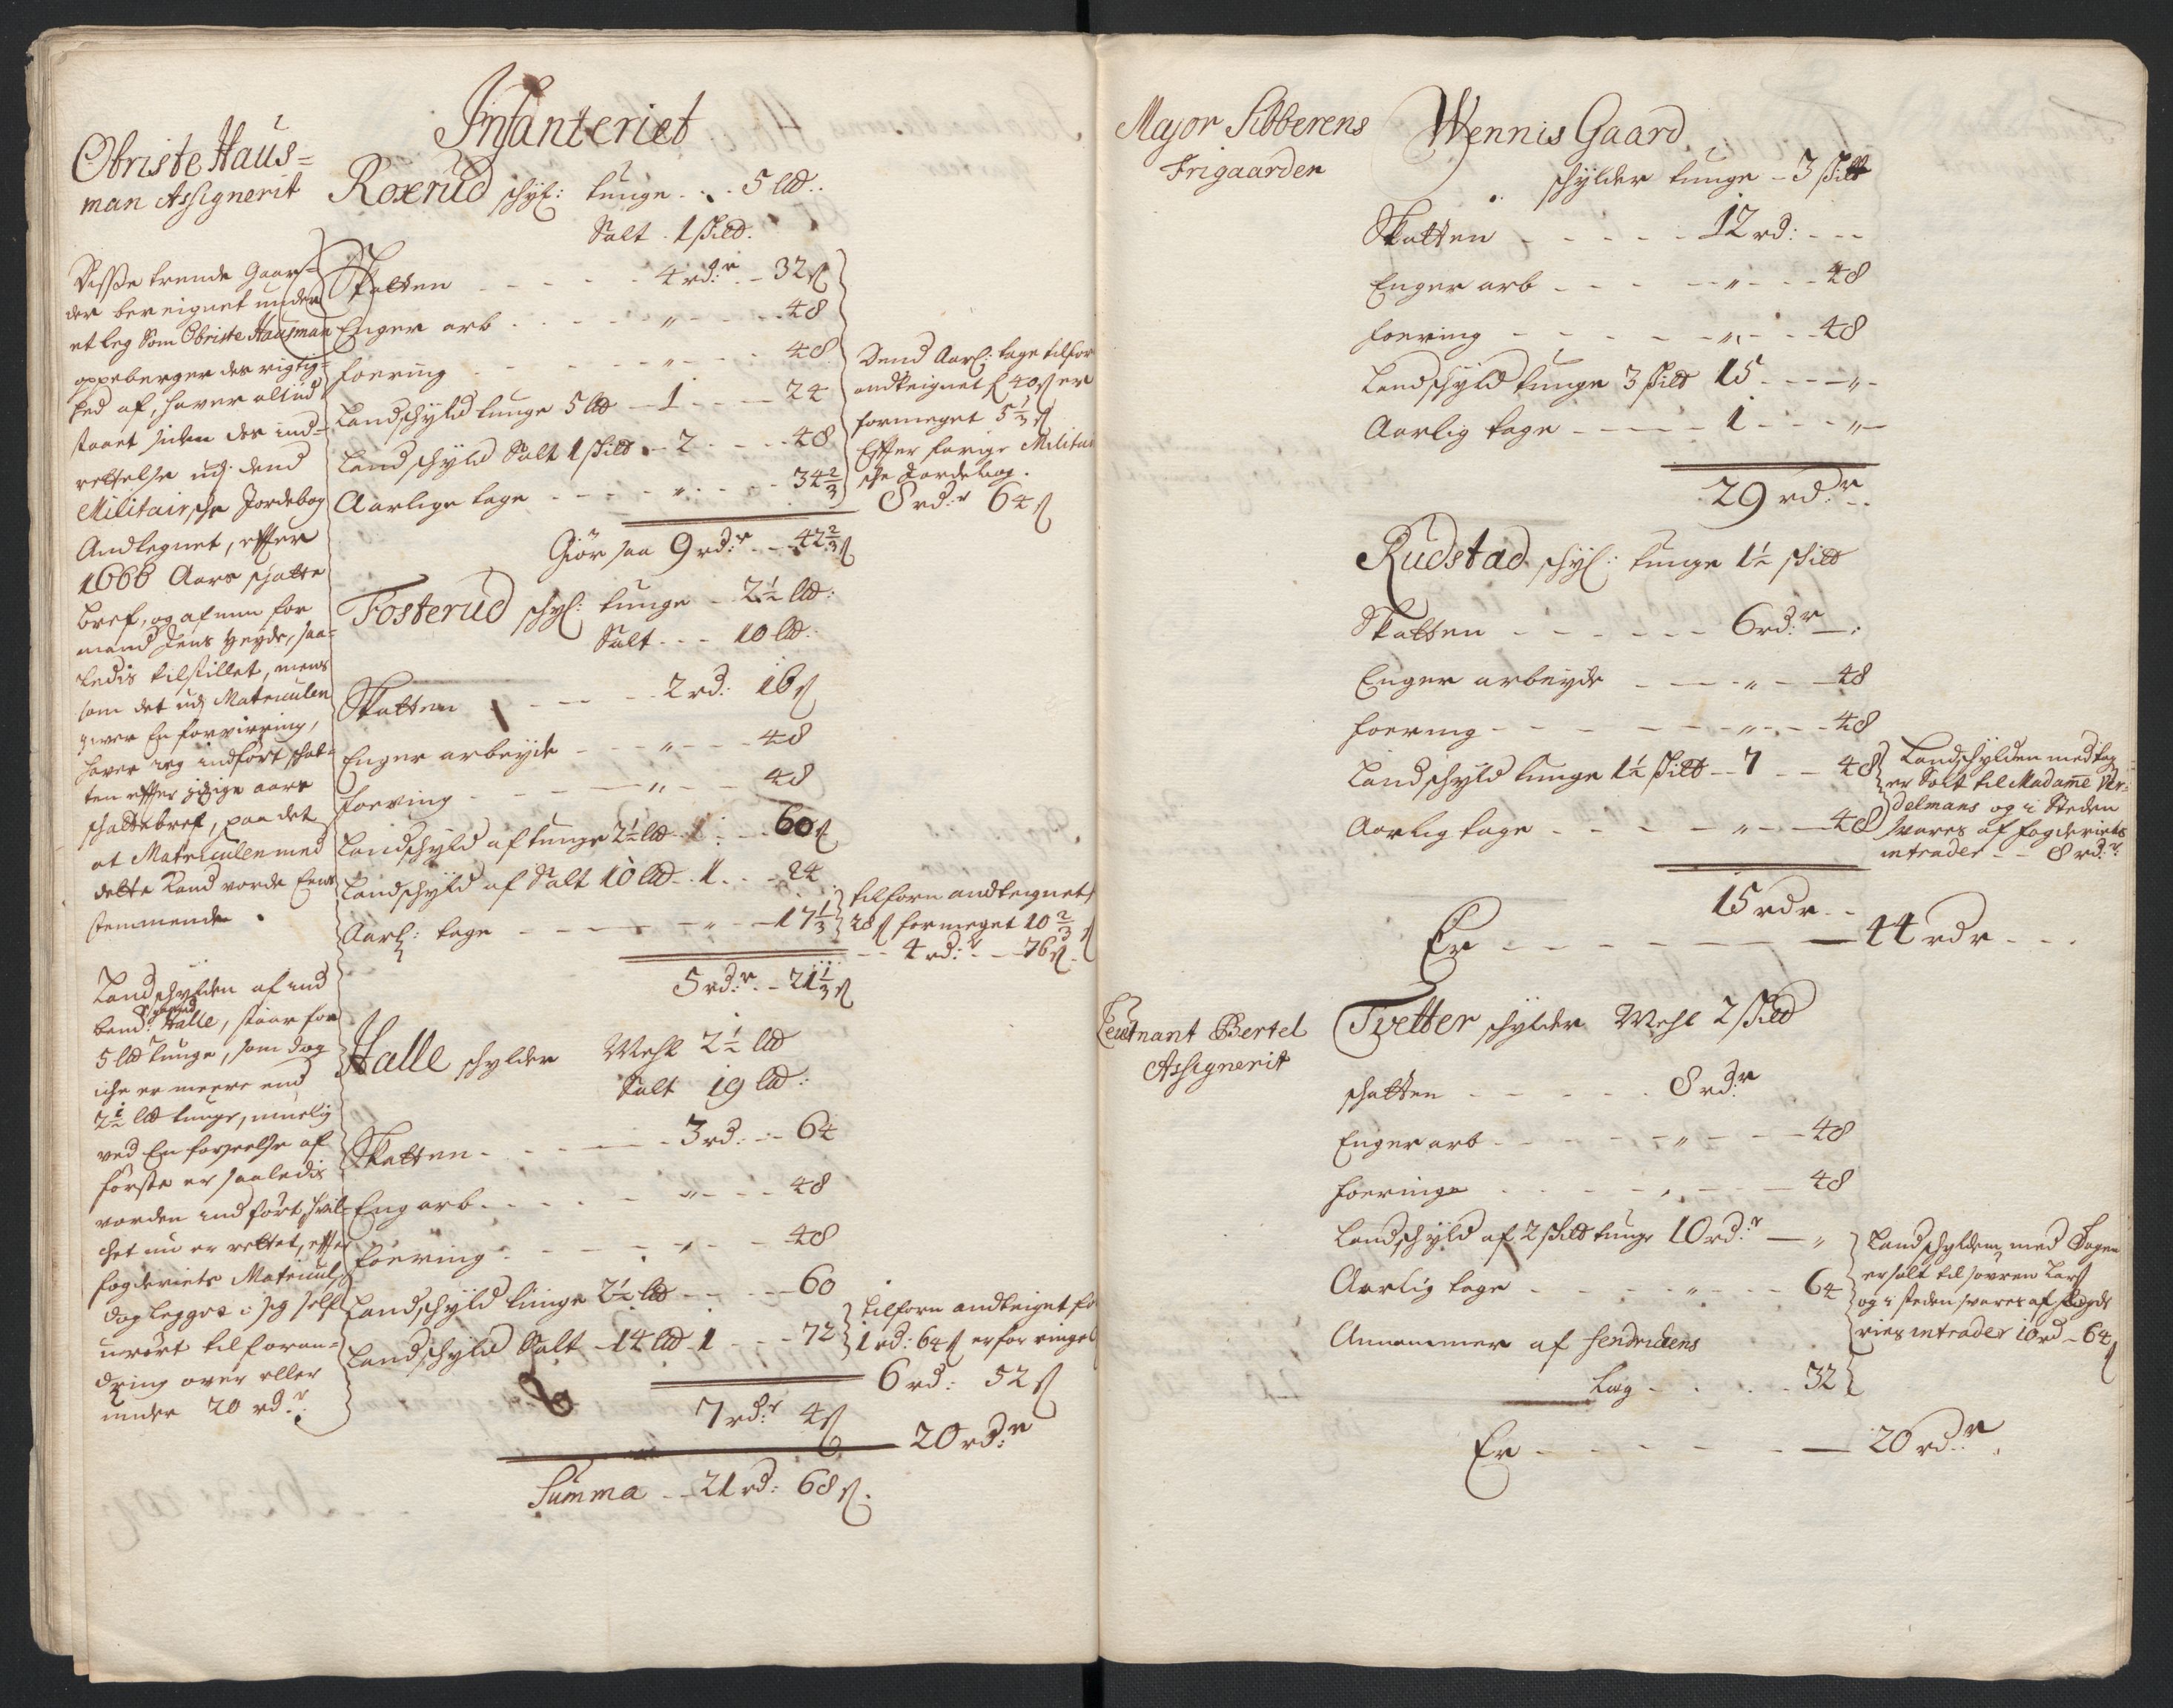 Infanteriet
Obriste Haus=
man Assignerit
Disse trende Gaar=
der beregnet under
et leg Som Obriste Hausman
oppeberger des rigtig=
hed af, haver altiid
staaet siden der ind=
rettelse udj dend
Militairsche Jordebog
Andtegnet, efter
1666 Aars schatte
bref, og af min for
mand Jens Heyde, saa=
ledis tilstillet, mens
som det udj Matriculen
gver En forvirring,
haver ieg indført schat=
ten efter ... aars
schattebref, paa det
at Matriculen med
dette kand vorde Eens
stemmende.
Landschylden af ind
bemt: gaard Halle, staar for
5 lld tunge, som dog
iche er meere end
2½ lld tunge, nemlig
ved En forseelse af
første er saaledis
vorden indført, hvil=
chet nu er rettet, efter
fogderiets Matricul,
dog legges i sig self
urørt til foran=
dring over eller
under 20 rd.r
Roxerud schyl: tunge . . 5 lld:
Salt . 1 schild.
Skatten - - - 4 rd:r - 32 s
Enger arb - - - " - - 48
foering - - - " - - 48
Landschyld tunge 5 lld - 1 - - 24
Landschyld Salt 1 schild - 2 - - 48
Aarlige tage - - - " - - 34⅔
Giør saa 9 rd:r - 42⅔ s
Dend Aarl: tage tilfor
andteignet f 40 s er
formeget 5⅓ s
Efter forige Militai
sche Jordebog.
8 rd:r 64 s
Fosterud schyl: tunge - 2½ lld:
Salt - - 10 lld:
Skatten - - - 2 rd: 16 s
Enger arbeyde - - " - - 48
foering - - - " - - 48
Landschyld af tunge 2½ lld - - 60 s
Landschyld af Salt 10 lld - 1 - - 24
Aarl: tage - - - " - 17⅓
5 rd:r - 21⅓ s
tilforn andteignet
28 s formeget 10⅔ s
4 rd:r - 76 s
Halle schylder Mehl 2½ lld
Salt 19 lld:
Skatten - - - 3 rd: - 64
Eng arb - - - " - - 48
foering - - - " - - 48
Landschyld tunge 2½ lld - - - 60
Landschyld Salt - 14 lld - 1 - - 72
7 rd:r 4 s
tilforn andteignet fo
1 rd: 64 s er for ringe
6 rd: 52 s
20 rd:r
Summa - 21 rd: 68 s.
Major Sibberens
Frigaarden
Wennis Gaard
schylder tunge - 3 schild
Skatten - - - 12 rd: - -
Enger arb - - - " - - 48
foering - - - " - - 48
Landschyld tunge 3 schild 15 - - "
Aarlig tage - - - 1 - - "
29 rd:r
Rudstad schyl: tunge 1½ schild
Skatten - - - 6 rd:r
Enger arbeyde - - - " - 48
foering - - - " - - 48
Landschyld tunge 1½ schild - 7 - - 48
Aarlig tage - - - " - 48
Landschylden med tag
er Solt til Madame Ver=
delmans og i Steden
svares af fogderiets
intrader - - 8 rd:r
15 rdr -
Er - - - 44 rdr - -
Leutnant Bertel
Assignerit
Tvetter schylder Mehl 2 schild
schatten - - - 8 rd:r
Enger arb - - - " - - 48
foeringe - - - - - 48
Landschyld af 2 schild tunge 10 rd:r - "
Aarlig tage - - - " - - 64
Annammer af hendrichens
Læg - - - 32
Landschylden, med Tagen
er solt til sovren Lars
og i steden svares af fogde
ries intrader 10 rd - 64 s
Er - - - 20 rd:r